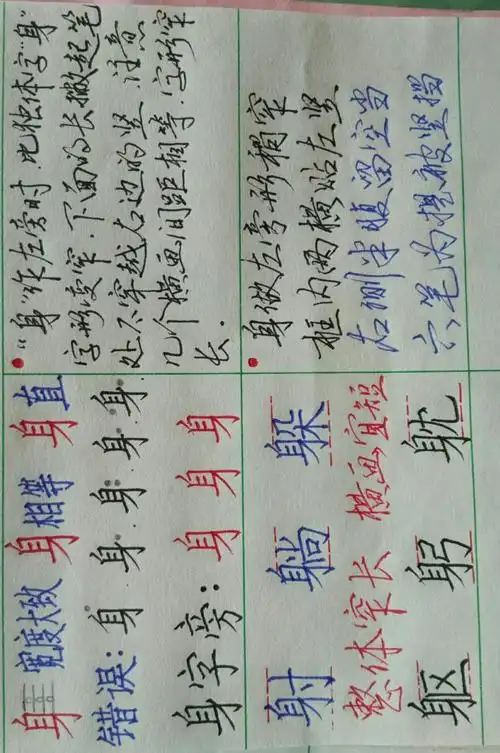 身 宽度大致 身 相等 身 直
错误: 身 身 身 身 身
身字旁: 身 身 身
"身"作左旁时,比独体字"身"
字形变窄,下面的长撇起笔
处不穿越右边的竖.注意
几个横画间距相等.字形窄
长.
射 躺 躲
整体窄长 横画宜短
躯 躬 躭
身做左旁形稍窄
框内两横贴左竖
右侧半腹留空当
六笔为提被竖挡